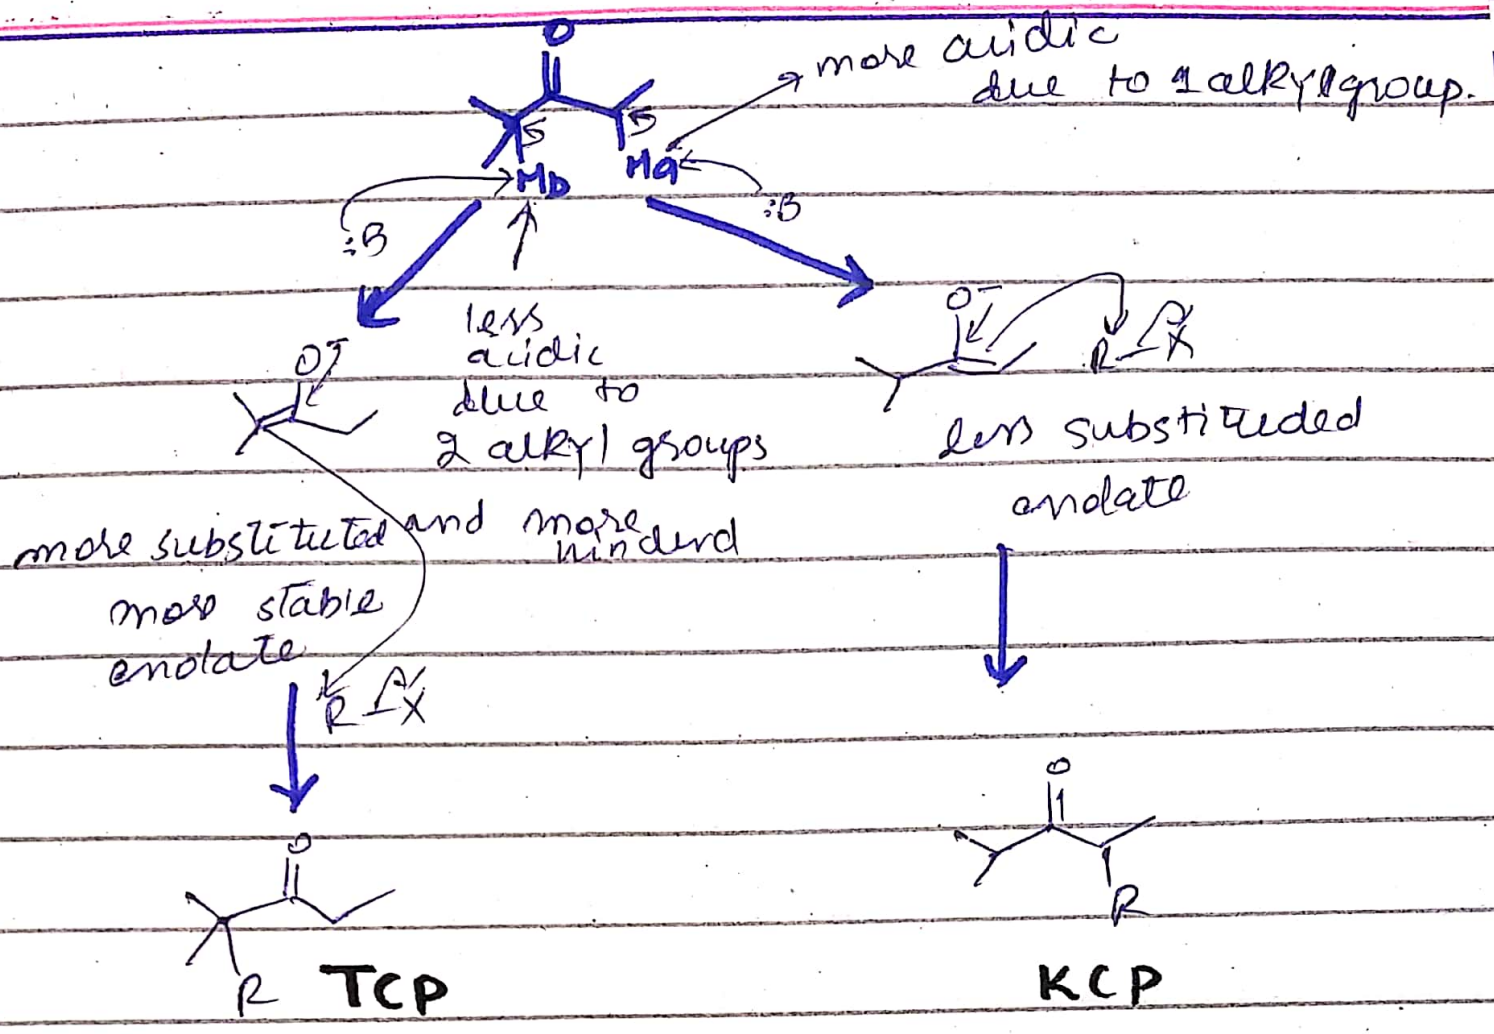 O
more acidic
due to 1 alkyl group.
Hb
Ha
:B
:B
less
acidic
due to
2 alkyl groups
and more
hinderd
O-
O-
R-X
more substituted
more stable
enolate
less substituded
enolate
R-X
O
R
TCP
O
R
KCP